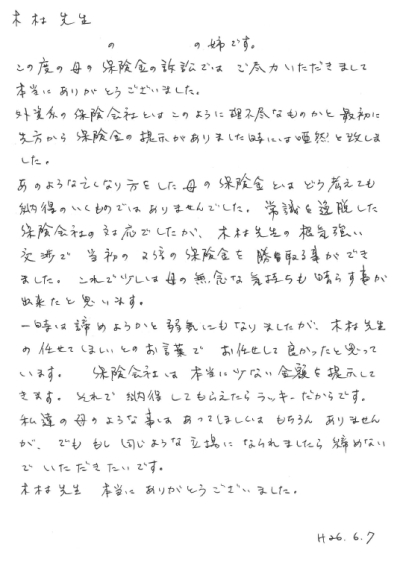 木村先生
の　　　の姉です。
この度の母の保険金の訴訟では ご尽力いただきまして
本当にありがとうございました。
外資系の保険会社とはこのように理不尽なものかと最初に
先方から保険金の提示がありました時には唖然と致しま
した。
あのような亡くなり方をした母の保険金とは どう考えても
納得のいくものではありませんでした。常識を逸脱した
保険会社の対応でしたが、木村先生の根気強い
交渉で 当初の 2倍の保険金を 勝ち取る事ができ
ました。これで少しは母の無念な気持ちも晴らす事が
出来たと思います。
一時は諦めようかと弱気にもなりましたが、木村先生
の任せてほしいとのお言葉で お任せして良かったと思って
います。 保険会社は本当に少ない金額を提示して
きます。それで納得してもらえたらラッキーだからです。
私達の母のような事は あってほしくは もちろん ありません
が、でも もし同じような立場に なられましたら 諦めない
で いただきたいです。
木村先生 本当にありがとうございました。
H26.6.7